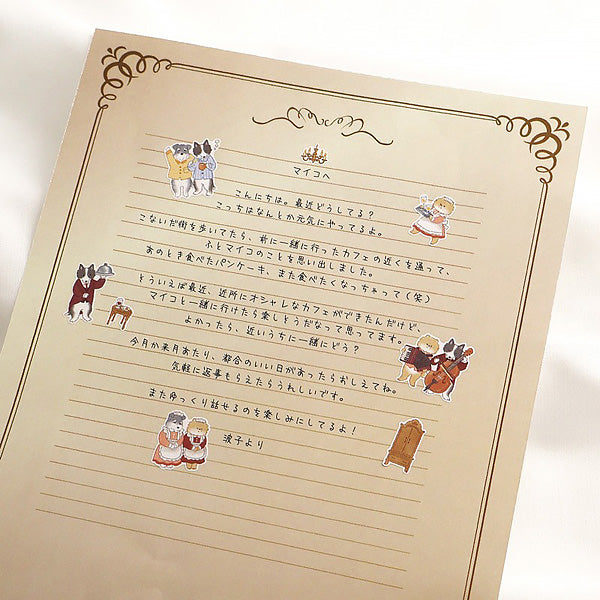 マイコへ
こんにちは。最近どうしてる?
こっちはなんとか元気にやってるよ。
こないだ街を歩いてたら、前に一緒に行ったカフェの近くを通って、
ふとマイコのことを思い出しました。
あのとき食べたパンケーキ、また食べたくなっちゃって(笑)
そういえば最近、近所にオシャレなカフェができたんだけど、
マイコと一緒に行けたら楽しそうだなって思ってます。
よかったら、近いうちに一緒にどう?
今月か来月あたり、都合のいい日があったらおしえてね。
気軽に返事もらえたらうれしいです。
またゆっくり話せるのを楽しみにしてるよ!
波子より